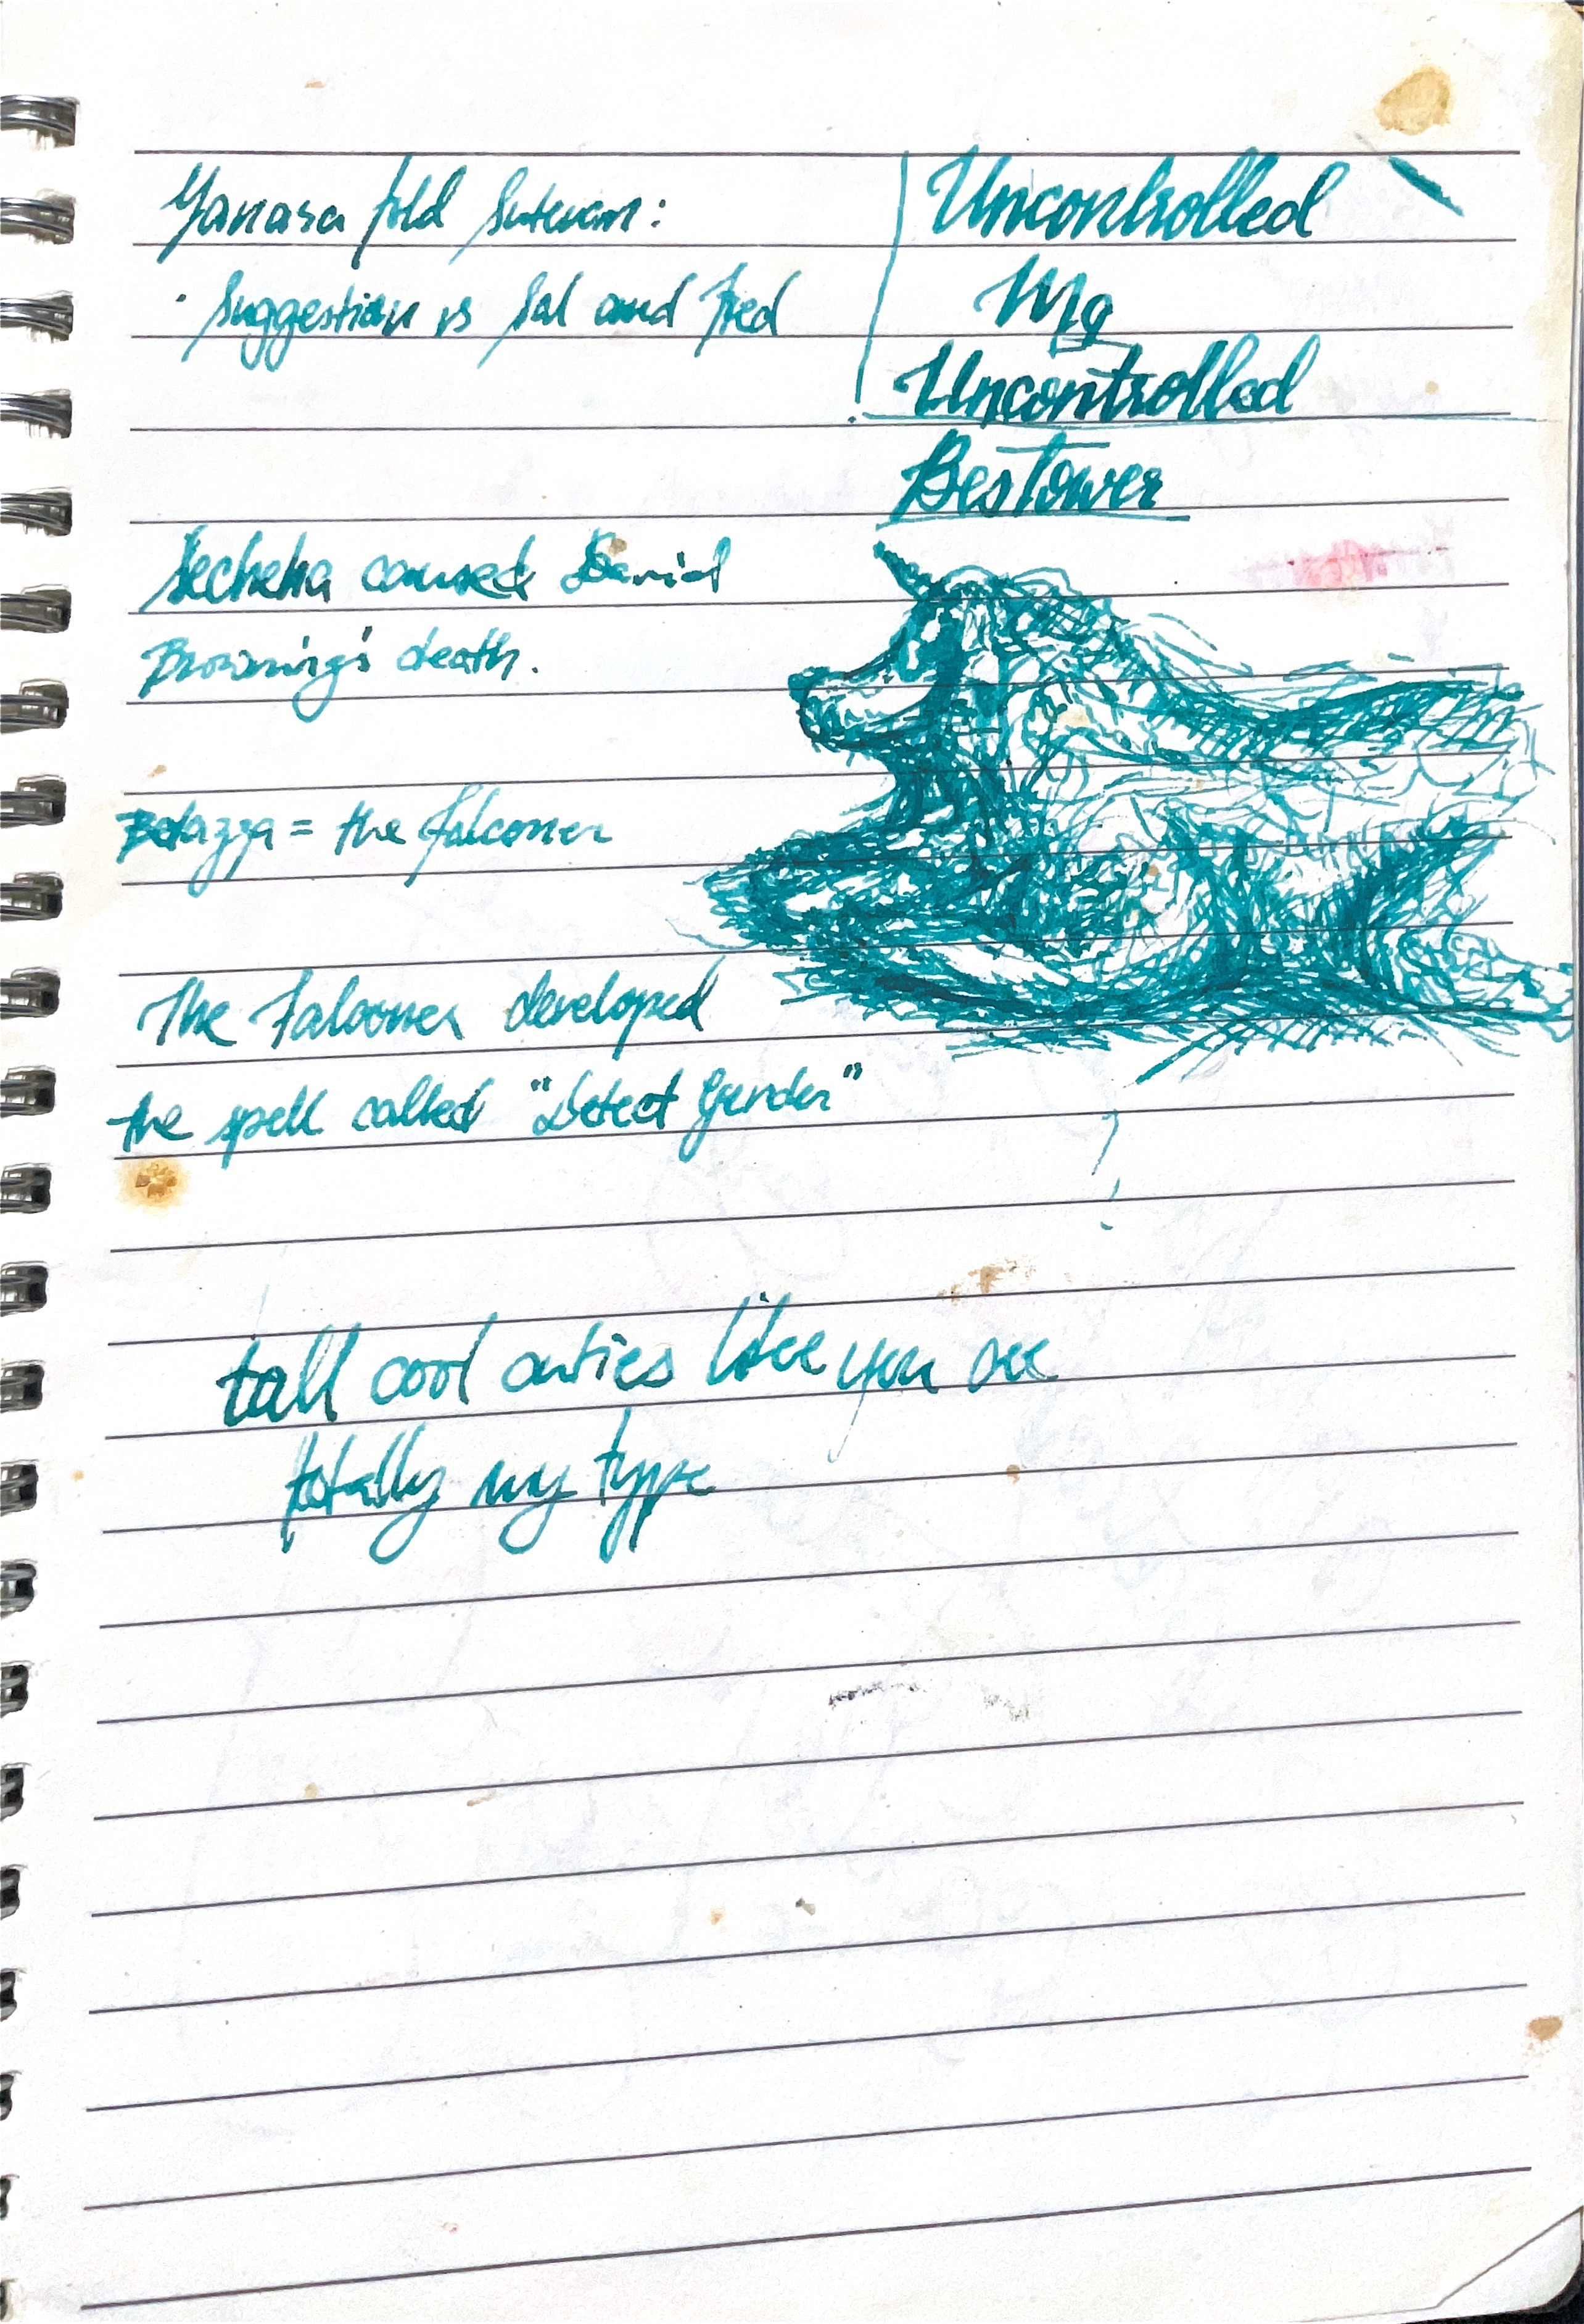 Yanasa told Suteran:
· Suggestion vs Sal and Fred
Uncontrolled
Mg
Uncontrolled
Bestower
Secheha caused Daniel
Browning's death.
Belazza = the falconer
The Falconer developed
the spell called "Detect Gender"
tall cool cuties like you are
totally my type